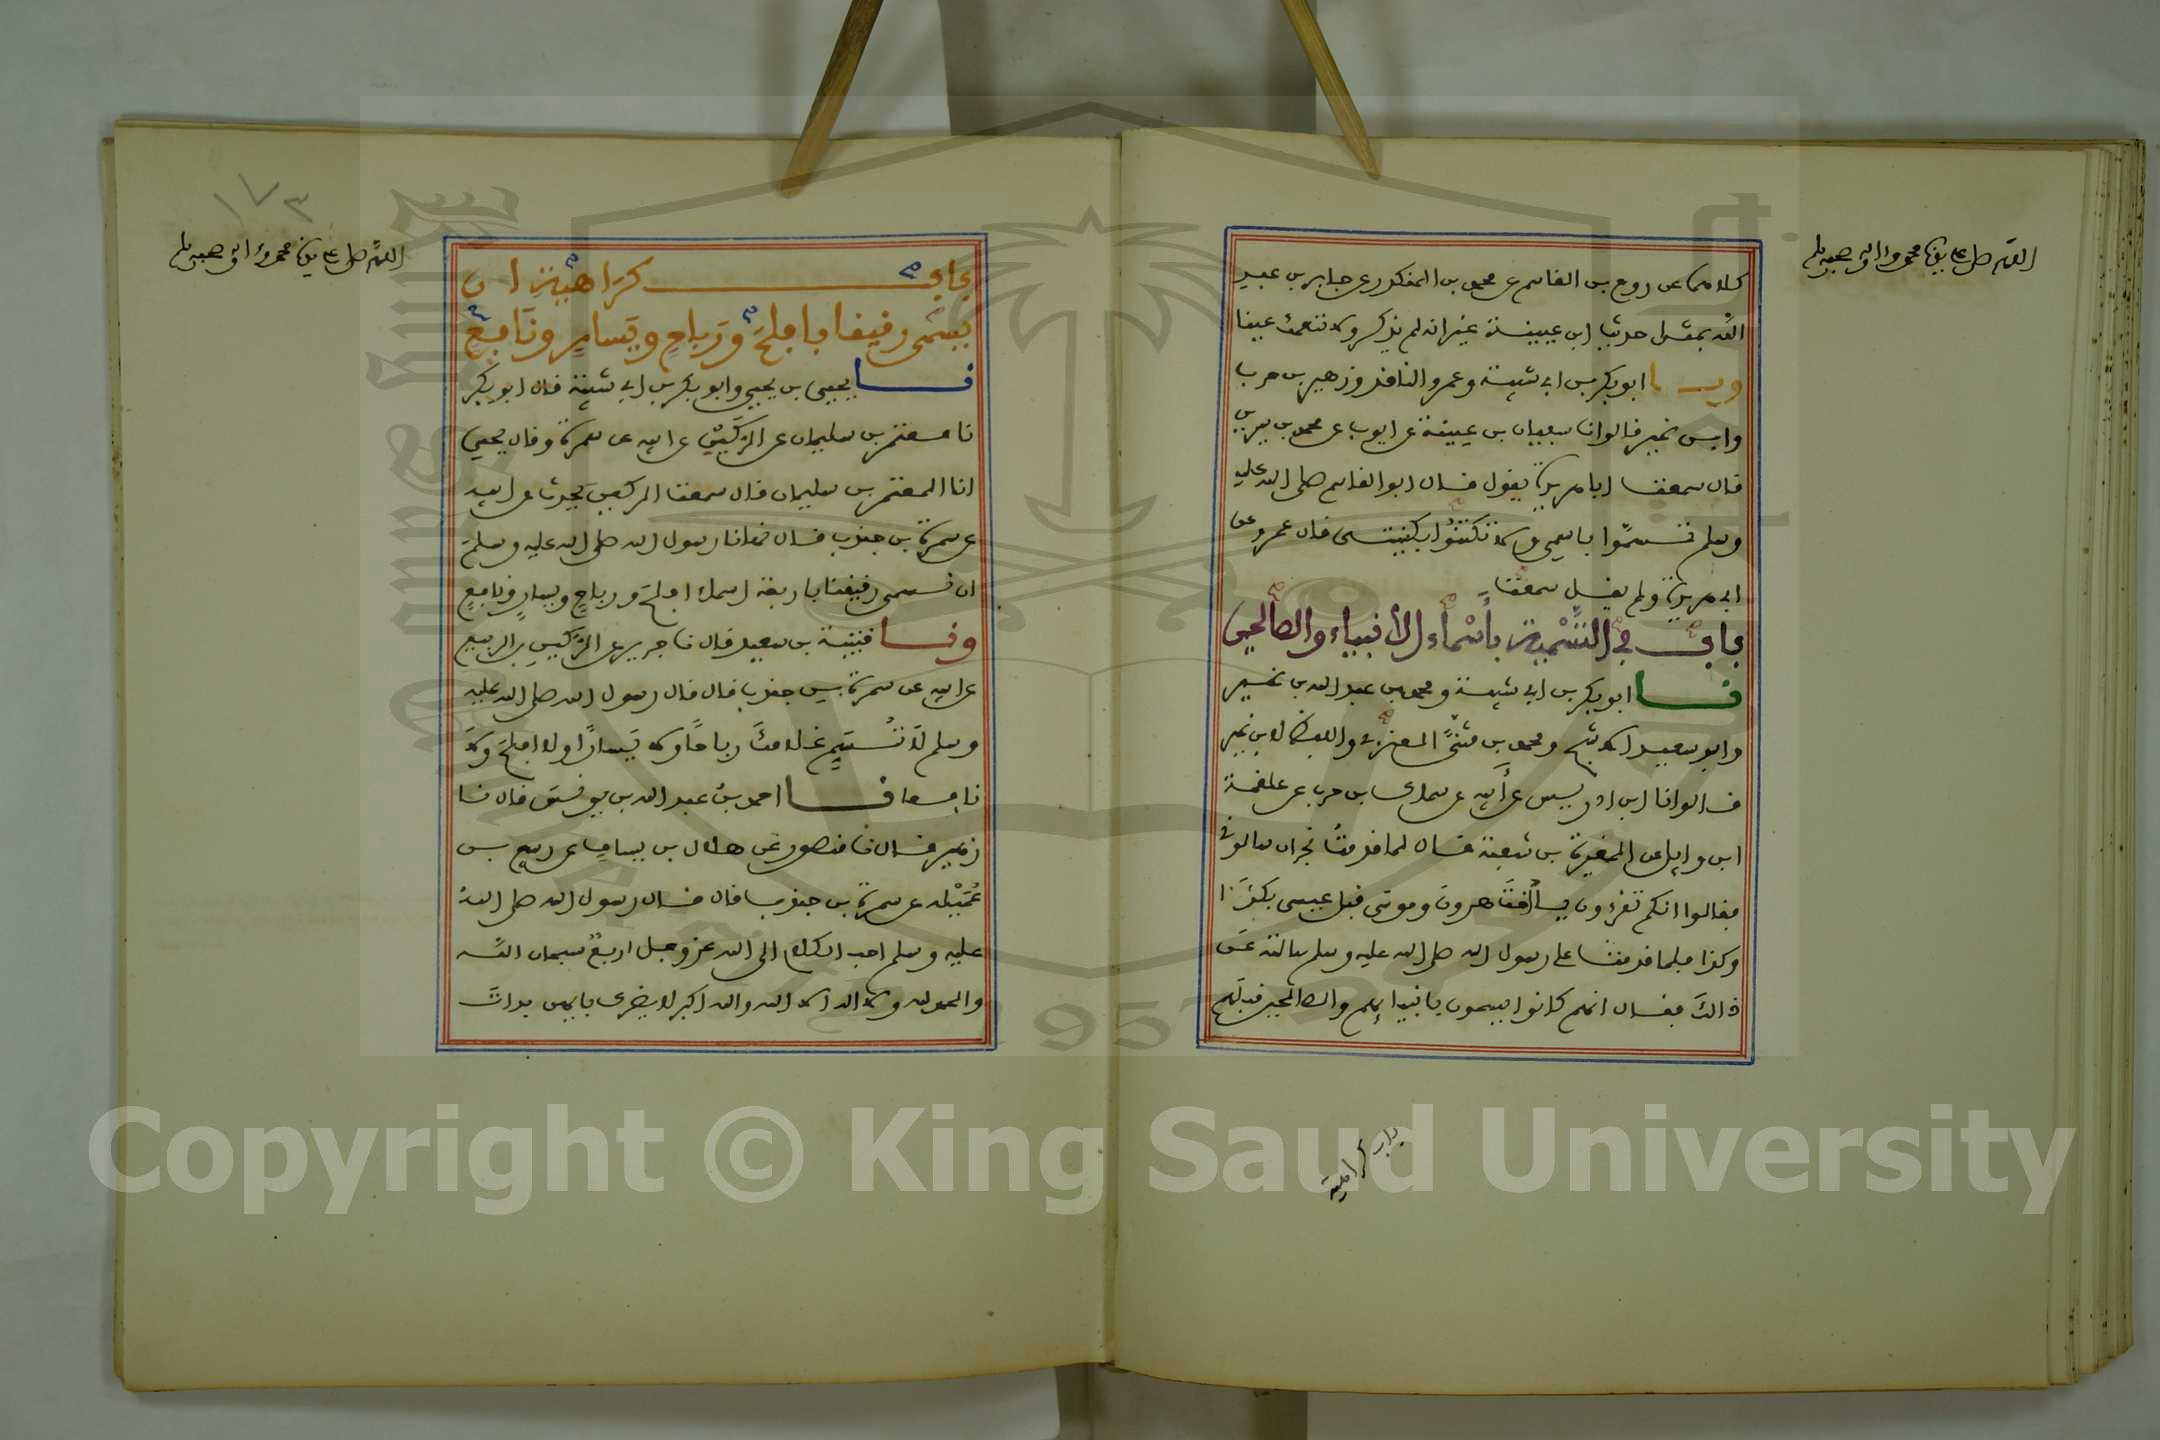 اللهم صل على سيدنا محمد وءاله وصحبه وسلم
كلاهما عن روح بن القاسم عن محمد بن المنكدر عن جابر بن عبد
الله بمثل حديث ابن عيينة غير انه لم يذكر ولا ننعمك عينا
ونا ابو بكر بن ابي شيبة وعمرو الناقد وزهير بن حرب
وابن نمير قالوا نا سفيان بن عيينة عن ايوب عن محمد بن سيرين
قال سمعت ابا هريرة يقول قال ابو القاسم صلى الله عليه
وسلم تسمَّوا باسمي ولا تكنَّوا بكنيتي قال عمرو عن
ابي هريرة ولم يقل سمعت
باب في التَّسْمية بأسْماء الأنبياء والصالحين
نا ابو بكر بن ابي شيبة ومحمد بن عبد الله بن نمير
وابو سعيد الاشج ومحمد بن مثنَّى العنزي واللفظ لابن نمير
قالوا نا ابن ادريس عن أبيه عن سماك بن حرب عن علقمة
ابن وايل عن المغيرة بن شعبة قال لما قدمتُ نجران سالوني
فقالوا انكم تقرءون يا أخت هرون وموسى قبل عيسى بكذا
وكذا فلما قدمت على رسول الله صلى الله عليه وسلم سالته عن
ذالك فقال انهم كانوا يسمون بانبيائهم والصالحين قبلهم
باب كراهية
١٧٣
اللهم صل على سيدنا محمد وءاله وصحبه وسلم
باب كراهية ان
يسمى رقيقا بافلح ورباح ويسار ونافع
نا يحيى بن يحيى وابو بكر بن ابي شيبة قال ابو بكر
نا معتمر بن سليمان عن الركين عن ابيه عن سمرة وقال يحيى
انا المعتمر بن سليمان قال سمعت الركين يحدث عن ابيه
عن سمرة بن جندب قال نهانا رسول الله صلى الله عليه وسلم
ان نسمي رقيقنا باربعة اسماء افلح ورباح ويسار ونافع
ونا قتيبة بن سعيد قال نا جرير عن الركين بن الربيع
عن ابيه عن سمرة بن جندب قال قال رسول الله صلى الله عليه
وسلم لا تُسَمِّ غلامك رباحًا ولا يسارًا ولا افلح ولا
نافعا نا احمد بن عبد الله بن يونس قال نا
زهير قال نا منصور عن هلال بن يساف عن ربيع بن
عُمَيْلة عن سمرة بن جندب قال قال رسول الله صلى الله
عليه وسلم احب الكلام الى الله عز وجل اربع سبحان الله
والحمد لله ولا اله الا الله والله اكبر لا يضرك بايهن بدات
Copyright © King Saud University
King Saud University
1957